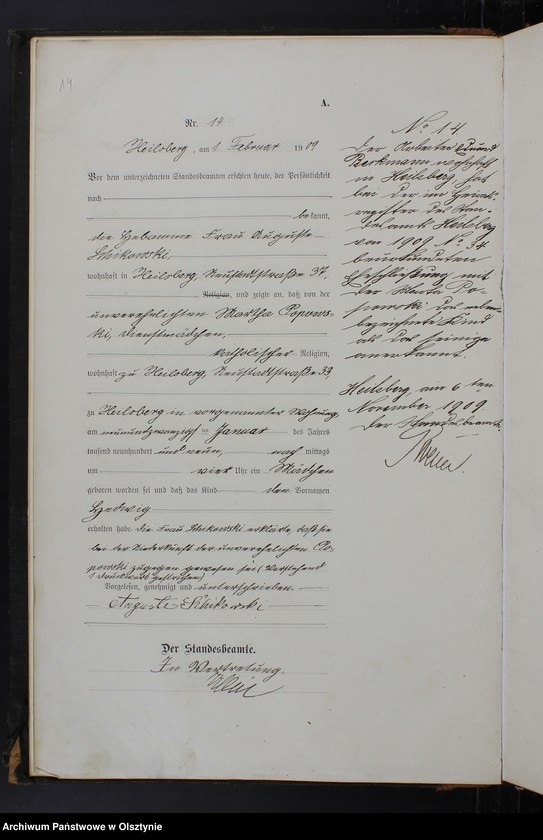 14
A.
Nr. 14
Heilsberg, am 1 Februar 1909
Vor dem unterzeichneten Standesbeamten erschien heute, der Persönlichkeit
nach
bekannt,
die Hebamme Frau Auguste
Schikowski,
wohnhaft in Heilsberg, Neustadtstraße 37,
Religion, und zeigte an, daß von der
unverehelichten Martha Popows-
ki, Dienstmädchen,
katholischer Religion,
wohnhaft zu Heilsberg, Neustadtstraße 39,
zu Heilsberg in vorgenannter Wohnung,
am neunundzwanzigsten Januar des Jahres
tausend neunhundert und neun, nach mittags
um vier Uhr ein Mädchen
geboren worden sei und daß das Kind den Vornamen
Hedwig
erhalten habe. Die Frau Schikowski erklärte, daß sie
bei der Niederkunft der unverehelichten Po-
powski zugegen gewesen sei (Vorstehend
1 Druckwort gestrichen)
Vorgelesen, genehmigt und unterschrieben.
Auguste Schikowski
Der Standesbeamte.
In Vertretung.
No 14.
Der Arbeiter
wohnhaft
in Heilsberg, hat
bei der im Heirats-
register des Stan-
desamts Heilsberg
von 1909 No 34
beurkundeten
Eheschließung mit
der Martha Po-
powski das neben-
bezeichnete Kind
als das seinige
anerkannt.
Heilsberg, am 6 ten
November 1909.
Der Standesbeamte.
Archiwum Państwowe w Olsztynie